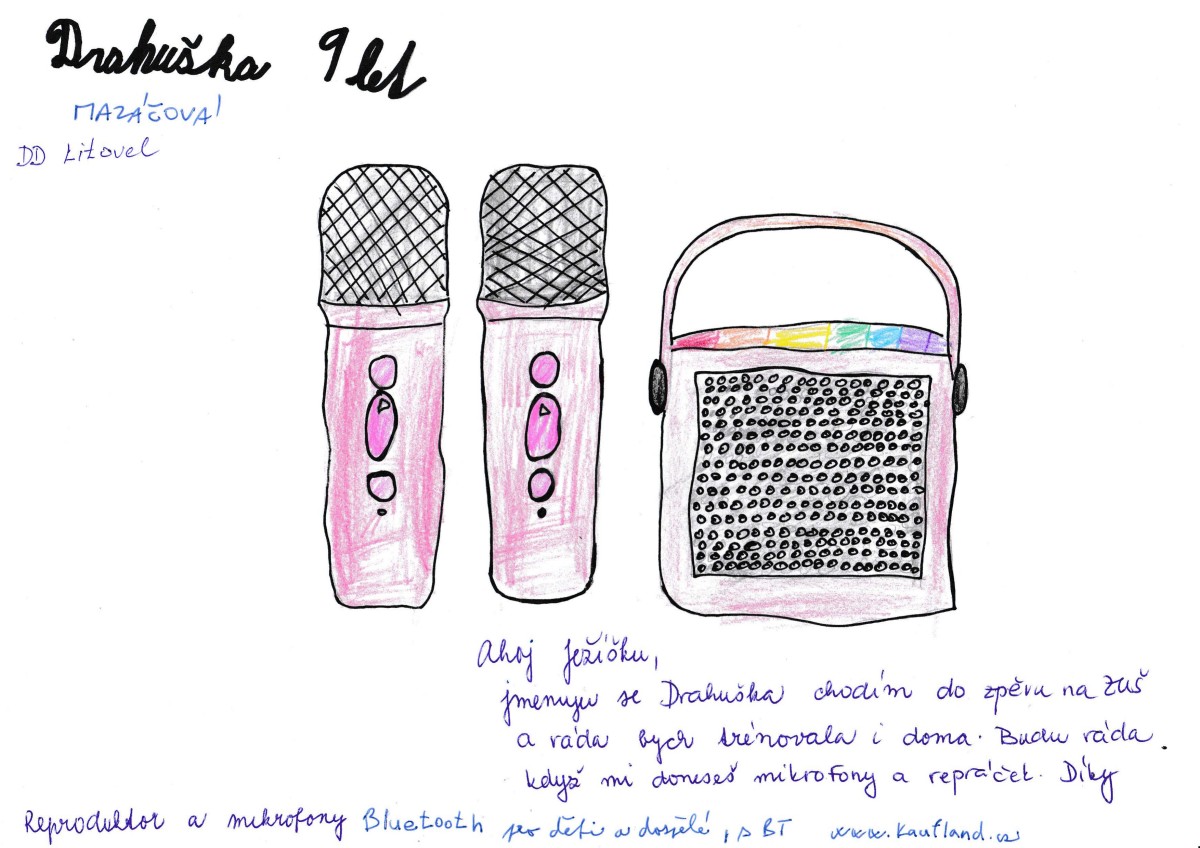 Drahuška 9 let
MAZÁČOVÁ
DD Litovel
Ahoj Ježíčku,
jmenuju se Drahuška chodím do zpěvu na ZUŠ
a ráda bych trénovala i doma. Budu ráda
když mi doneseš mikrofony a repráček. Díky
Reproduktor a mikrofony Bluetooth pro děti a dospělé, s BT www.kaufland.cz